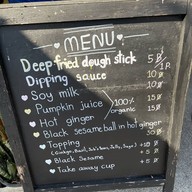 MENU
Deep fried dough stick 5 B
1R
Dipping sauce 10 B
Soy milk 10
Pumpkin juice 15
100% organic
Hot ginger 15
Black sesame ball in hot ginger 30
Topping +10
Black Sesame +5
Take away cup +5